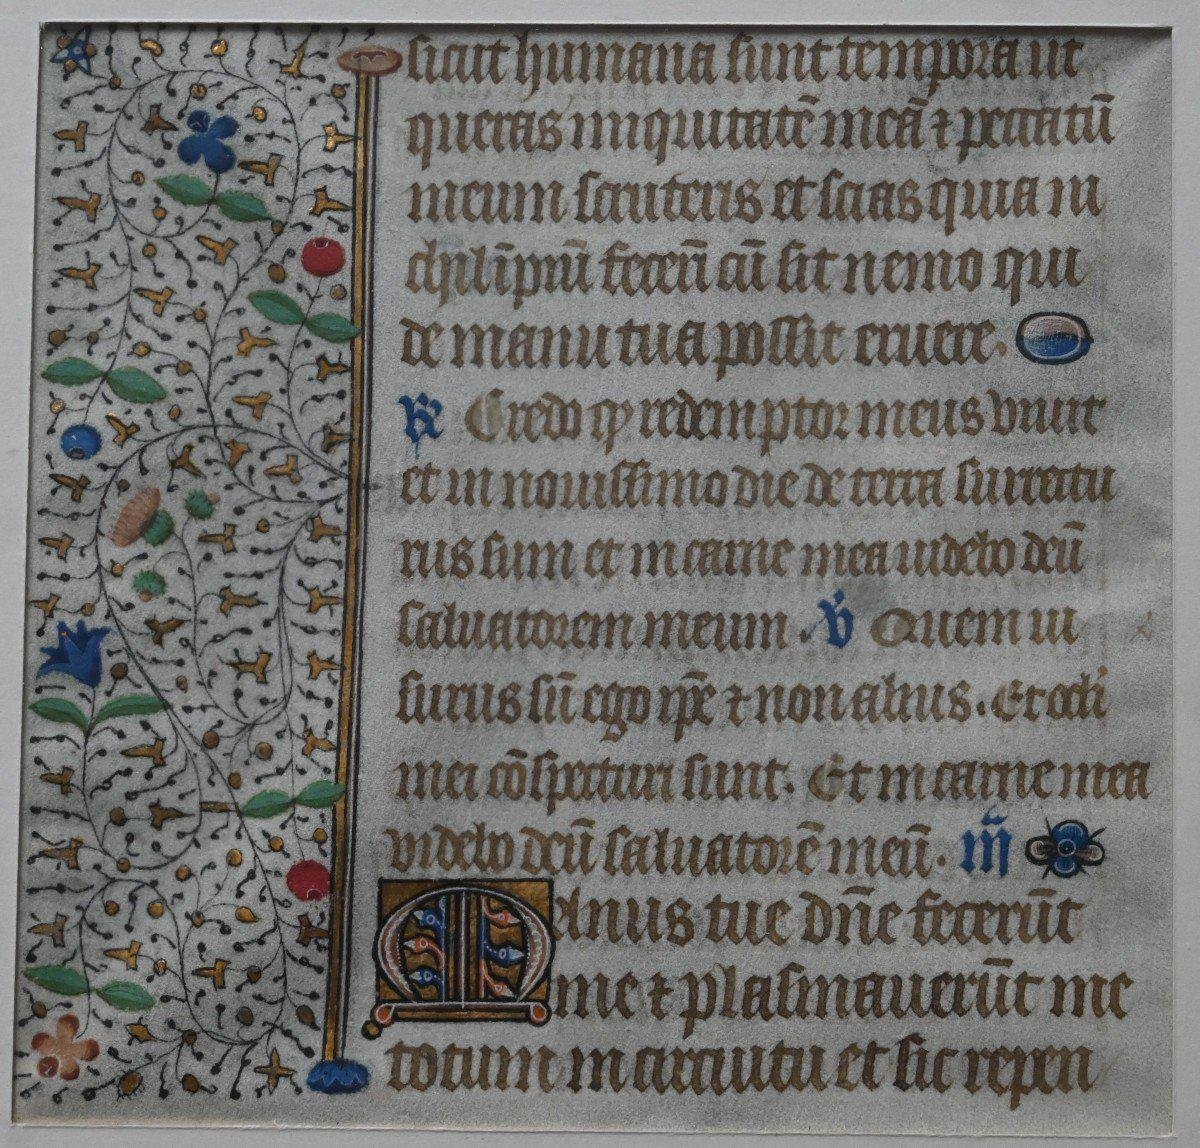 sicut humana sunt tempora ut
queras iniquitatē meā ⁊ peccatū
meum scruteris et scias quia ni
chil īpiū fecerī cū sit nemo qui
de manu tua possit eruere.
℟ Credo qꝫ redemptor meus viuit
et in nouissimo die de terra surrectu
rus sum et in carne mea uidebo deū
saluatorem meum. ℣ Quem ui
surus sū ego ip̄e ⁊ non alius. Et oculi
mei cōspecturi sunt. Et in carne mea
videbo deū saluatorē meū.
Manus tue dn̄e fecerūt
me ⁊ plasmauerūt me
totum in circuitu et sic repen